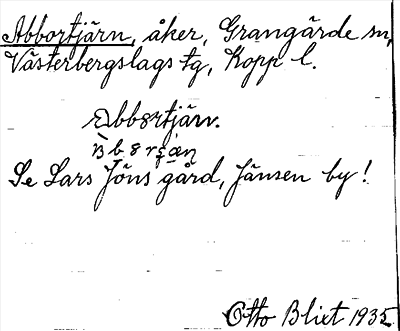 Abbortjärn, åker, Grangärde sn,
Västerbergslags tg, Kopp l.
Abbortjärn.
Se Lars Jöns gård, Jänsen by!
Otto Blixt 1935